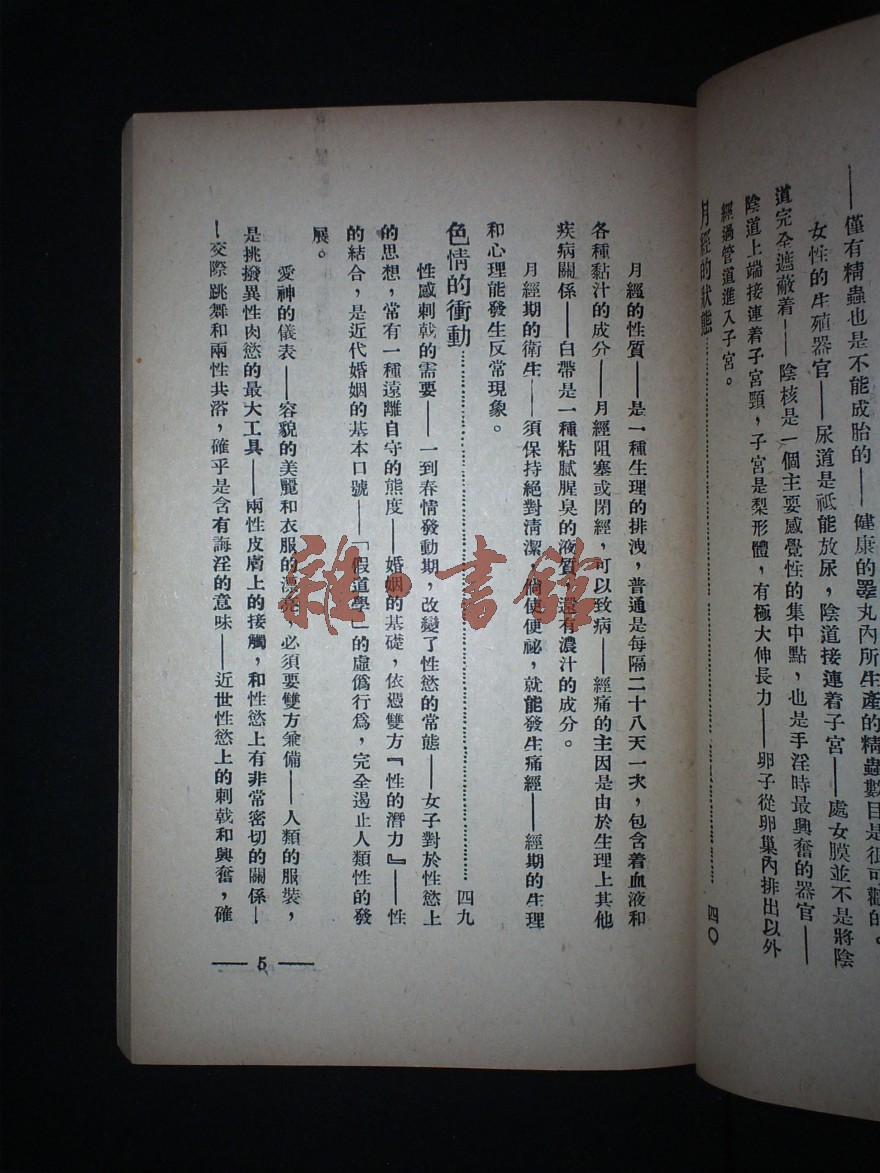 ──僅有精蟲也是不能成胎的──健康的睪丸內所生產的精蟲數目是很可觀的。
女性的生殖器官──尿道是祇能放尿，陰道接連着子宮──處女膜並不是將陰
道完全遮蔽着──陰核是一個主要感覺性的集中點，也是手淫時最興奮的器官──
陰道上端接連着子宮頸，子宮是梨形體，有極大伸長力──卵子從卵巢內排出以外
經過管道進入子宮。
月經的狀態……………………四〇
月經的性質──是一種生理的排洩，普通是每隔二十八天一次，包含着血液和
各種黏汁的成分──月經阻塞或閉經，可以致病──經痛的主因是由於生理上其他
疾病關係──白帶是一種粘膩腥臭的液質，還有濃汁的成分。
月經期的衛生──須保持絕對清潔，倘使便祕，就能發生痛經──經期的生理
和心理能發生反常現象。
色情的衝動……………………四九
性感刺戟的需要──一到春情發動期，改變了性慾的常態──女子對於性慾上
的思想，常有一種遠離自守的態度──婚姻的基礎，依憑雙方『性的潛力』──性
的結合，是近代婚姻的基本口號──「假道學」的虛僞行爲，完全遏止人類性的發
展。
愛神的儀表──容貌的美麗和衣服的漂亮，必須要雙方兼備──人類的服裝，
是挑撥異性肉慾的最大工具──兩性皮膚上的接觸，和性慾上有非常密切的關係─
─交際跳舞和兩性共浴，確乎是含有誨淫的意味──近世性慾上的刺戟和興奮，確
── 5 ──
雜·書館